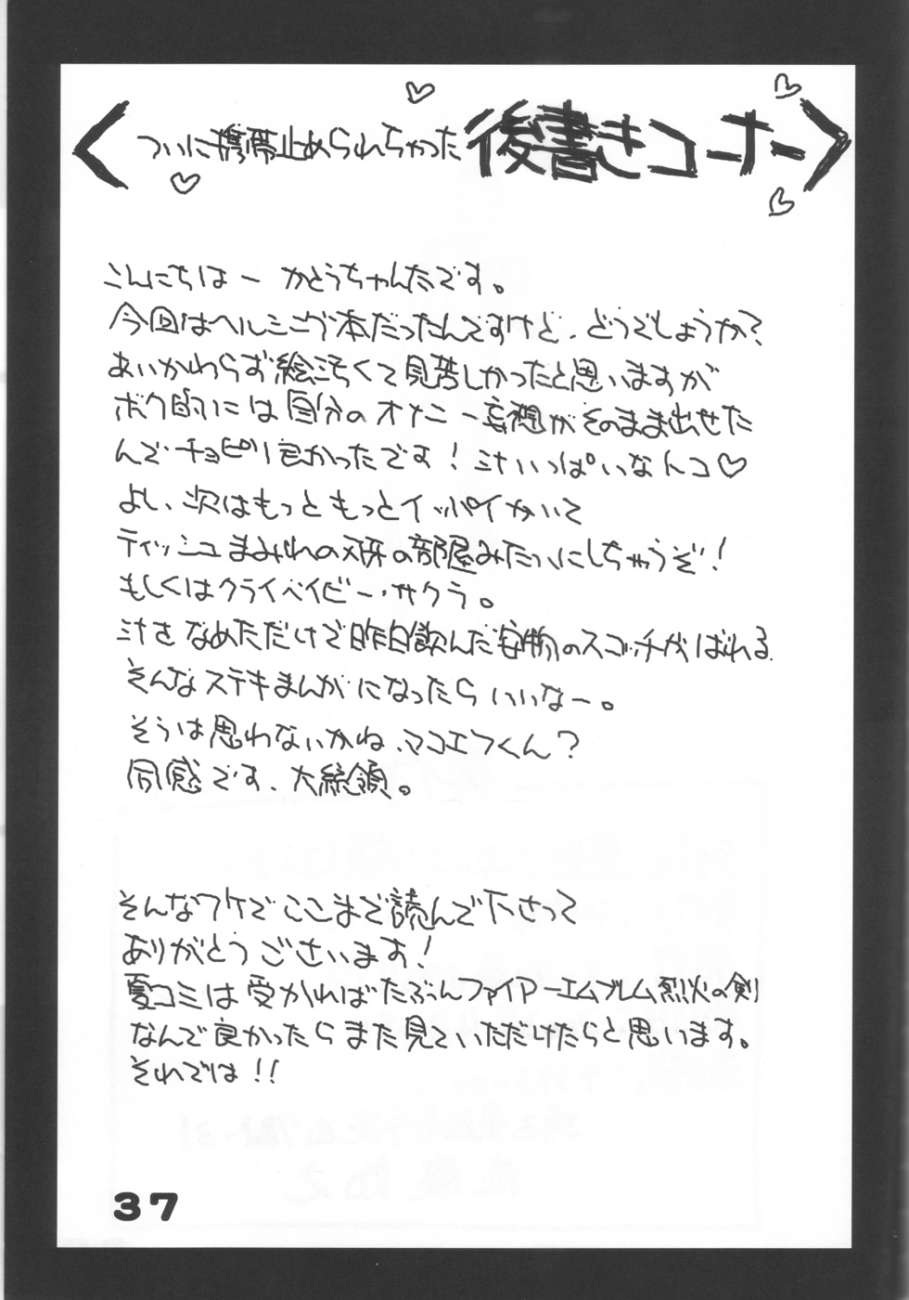 ついに携帯止められちゃった 後書きコーナー
こんにちはー かとうちゃんたです。
今回はヘルシング本だったんですけど、どうでしょうか?
あいかわらず絵汚くて見苦しかったと思いますが
ボク的には自分のオナニー妄想がそのまま出せた
んで・チョピリ良かったです! 汁いっぱいなんコ♡
よし、次はもっともっとイッパイかいて
ティッシュまみれの の部屋みたいにしちゃうぞ!
もしくはクライベイビー・サクラ。
汁をなめただけで昨日飲んだ安物のスコッチがばれる
そんなステキまんがになったらいいなー。
そうは思わないかね、マコエフくん?
同感です、大統領。
そんなワケでここまで読んで下さって
ありがとうございます!
夏コミは受かればたぶんファイアーエムブレム烈火の剣
なんで良かったらまた見ていただけたらと思います。
それでは!!
37